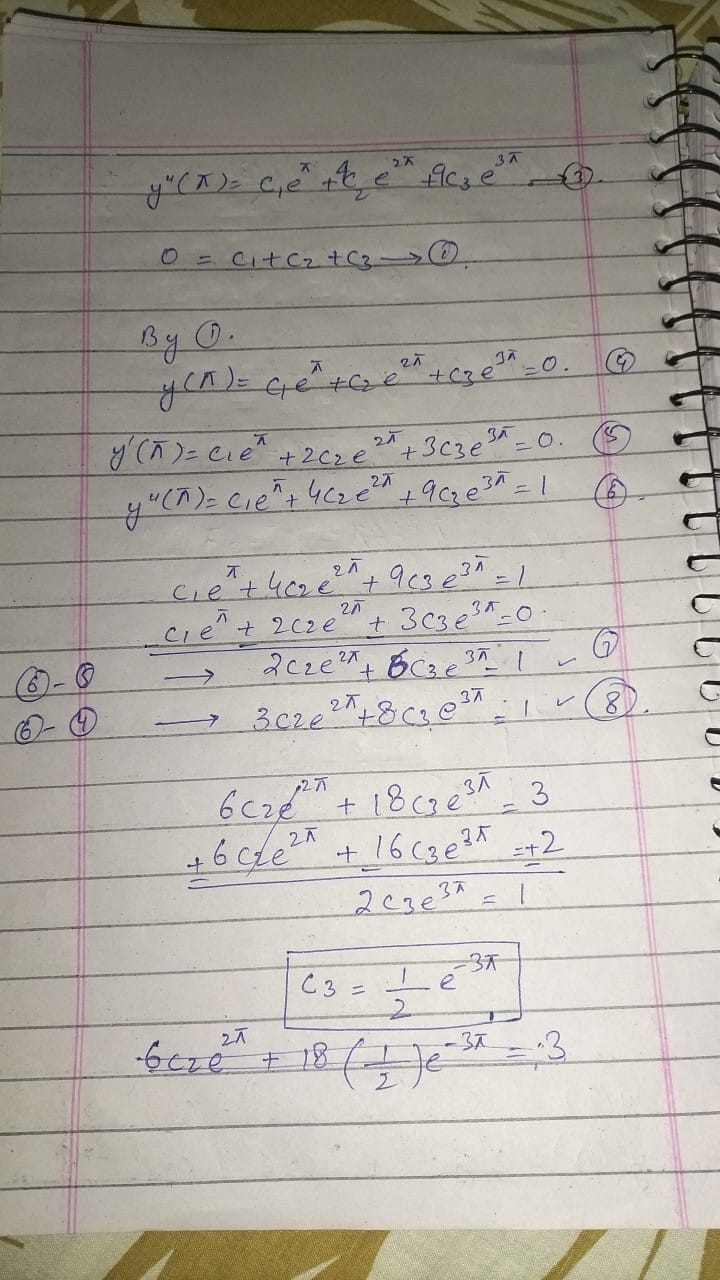 y"(π) = c₁e^π + 4c₂e^2π + 9c₃e^3π → ③.
0 = c₁ + c₂ + c₃ → ①.
By ①.
y(π) = c₁e^π + c₂e^2π + c₃e^3π = 0. ④
y'(π) = c₁e^π + 2c₂e^2π + 3c₃e^3π = 0. ⑤
y"(π) = c₁e^π + 4c₂e^2π + 9c₃e^3π = 1 ⑥.
c₁e^π + 4c₂e^2π + 9c₃e^3π = 1
c₁e^π + 2c₂e^2π + 3c₃e^3π = 0.
⑥-⑤ → 2c₂e^2π + 6c₃e^3π = 1 ✓ ⑦
⑥-④ → 3c₂e^2π + 8c₃e^3π = 1 ✓ ⑧.
6c₂e^2π + 18c₃e^3π = 3
+6c₂e^2π + 16c₃e^3π = +2
2c₃e^3π = 1
c₃ = 1/2 e^-3π
6c₂e^2π + 18(1/2)e^-3π = 3